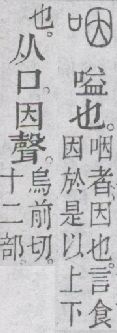 咽
嗌也。咽者、因也。言食
因於是以上下
也。从口。因聲。烏前切。
十二部。